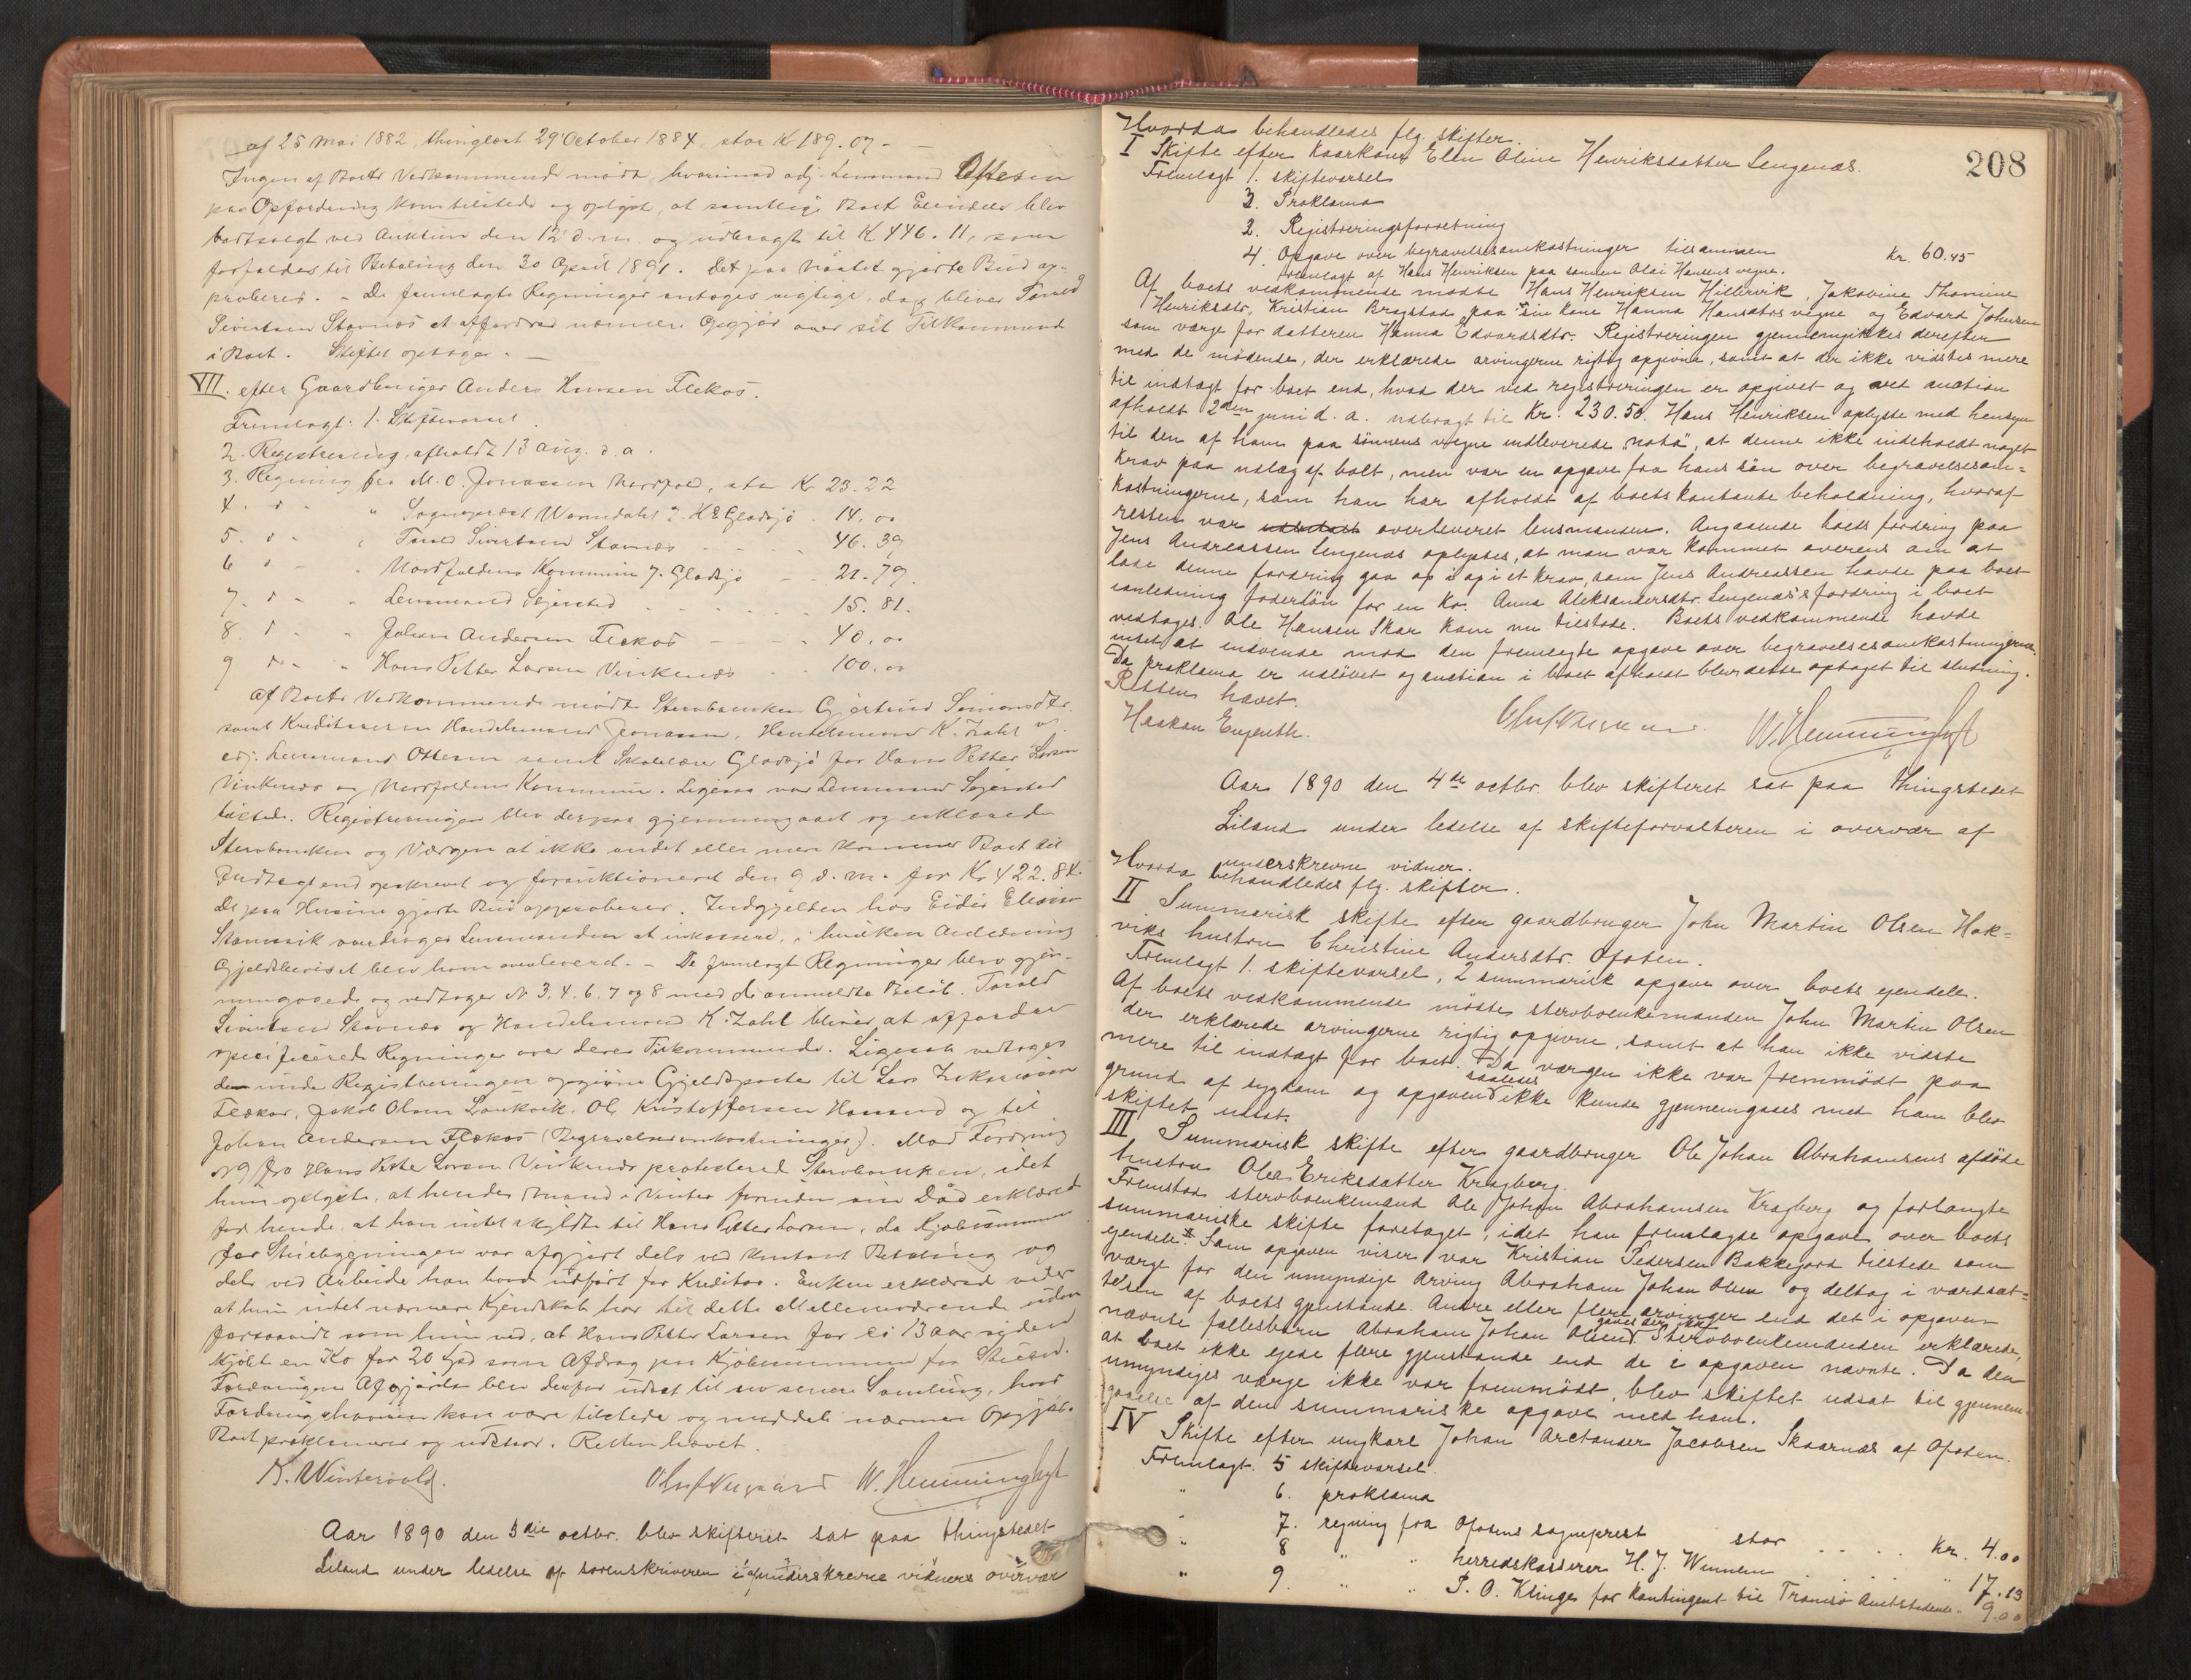 af 25 Mai 1882, thinglæst 29 October 1884, stor K 189.07 -
Ingen af Boets Vedkommende mødte, hvorimod adj. Lensmand Ottesen
paa Opfordning komtilstede og oplyste, at samtlige Boets Eiendele blev
bortsolgt ved Auktion den 12 d.m. og udbragt til K 446.11, som
forfalder til Betaling den 30 April 1891. Det paa Naatet gjorte Bud ap-
proberes. - De fremlagte Regninger antages rigtige, dog bliver Tarald
Sivertsen Stavnes at affordres nærmere Opgjør over sit Tilkommende
i Boet. Skiftet optages. -
VII. efter Gaardbruger Anders Hansen Flekos.
Fremlagt: 1. Skiftevarsel
2. Registrering, afholdt 13 aug. d.a.
3. Regning fra M. O. Jonassen Nordfold, stor K 23.22
4. d - " Sogneprest Warndahl v. K E Gladsjø . 14.00
5. d - " Tarald Sivertsen Stavnes - - - 46.39
6 d - " Nordfoldens Kommune v. Gladsjø - - 21.79.
7. d - " Lensmand Sejersted - - - 15.81.
8. d - " Johan Andersen Flekos - - 40.00
9 d - " Hans Petter Larsen Vinkenes - - 100.00
Af Boets Vedkommende mødte Stervboenken Gjertrud Simonsdtr.
samt Kreditorerne Handelsmand Jonassen, Handelsmand K. Zahl v/
adj. Lensmand Ottesen samt Skolelærer Gladsjø for Hans Petter Larsen
Vinkenes og Nordfoldens Kommune. Ligesaa var Lensmand Sejersted
tilstede. Registreringen blev derpaa gjennemgaaet og erklærede
Stervboenken og Værgen at ikke andet eller mere kommer Boet til
Indtægt end opskrevet og forauktioneret den 9 d.m. for Kr 422.84.
De paa Husene gjorte Bud approberes. Indgjelden hos Eidis Eliasen
overdrages Lensmanden at inkassere, i hvilken Anledning
Gjeldsbeviset blev ham overleveret. - De fremlagte Regninger blev gjen-
nemgaaede og vedtages N 3.4.6.7 og 8 med de anmeldte Beløb. Tarald
Sivertsen Stavnes og Handelsmand K. Zahl bliver at affordre
specificerede Regninger over deres Tilkommende. Ligesaa vedtages
de under Registreringen opgivne Gjeldsposter til Lars Zakariassen
Flekos, Jakob Olsen Løukvik, Ole Kristoffersen Hanand og til
Johan Andersen Flekos (Begravelsesomkostninger). Mod Fordring
N 9 fra Hans Petter Larsen Vinkenes protesterede Stervboenken, idet
hun oplyste, at hendes Mand i Vinter forinden sin Død erklærede
for hende, at han intet skyldte til Hans Petter Larsen, da Kjøbesummen
for Stuebygningen var afgjort dels ved kontant Betaling og
dels ved Arbeide han havde udført for Kreditor. Enken erklærede videre
at hun intet nærmere Kjendskab har til dette Mellemværende uden
forsaavidt som hun ved, at Hans Petter Larsen for ei 13 aar siden
kjøbt en Ko for 20 Spd som Afdrag paa Kjøbesummen for Stuen.
Fordringens Afgjørelse blev derfor udsat til en senere Samling, hvor
Fordringshaveren kan være tilstede og meddele nærmere Opgjør.
Boet proklameres og udstaar. Retten hævet.
K. Wintervold. Oluf Nergaard W. Hemminghyt
Aar 1890 den 3die octbr. blev skifteret sat paa thingstedet
Liland under ledelse af sorenskriveren i af underskrevne vidners overvær
208
Hvorda behandledes flg. skifter.
I Skifte efter Kaarkone Elen Oline Henriksdatter Lengenæs.
Fremlagt 1. skiftevarsel
3. Proklama
2. Registreringsforretning
4. Opgave over begravelsesomkostninger tilsammen Kr. 60.45
fremlagt af Hans Henriksen paa sønnen Olai Hansens vegne.
Af boets vedkommende mødte Hans Henriksen Hillervik, Jakobine Thomine
Henriksdtr, Kristian Brogstad paa sin kone Hanna Hansdtrs vegne og Edvard Johnsen
som værge for datteren Hanna Edvardsdtr. Registreringen gjennemgikkes derefter
med de mødende, der erklærede arvingerne rigtig opgivne, samt at der ikke vidstes mere
til indtægt for boet end, hvad der ved registreringen er opgivet og ved auction
afholdt 2den juni d. a. udbragt til Kr. 230.50. Hans Henriksen oplyste med hensyn
til den af ham paa sønnens vegne indleverede "nota", at denne ikke indeholdt noget
krav paa udlæg af bolt, men var en opgave fra hans søn over begravelsesom=
kostningerne, som han har afholdt af boets kontante beholdning, hvoraf
resten var overleveret lensmanden. Angaaende boets fordring paa
Jens Andreassen Lengenæs oplystes, at man var kommet overens om at
lade denne fordring gaa op i op i et krav, som Jens Andreassen havde paa boet
ianledning foderløn for en ko. Anna Aleksandersdtr. Lengenæs's fordring i boet
vedtages. Ole Hansen Skar kom nu tilstede. Boets vedkommende havde
intet at indvende mod den fremlagte opgave over begravelsesomkostningerne.
Da proklama er udløbet og auction i boet afholdt blev dette optaget til slutning.
Retten hævet.
Haakon Engenth. Oluf Nergaard. W. Hemminghyt
Aar 1890 den 4de octbr. blev skifteret sat paa thingstedet
Liland under ledelse af skifteforvalteren i overvær af
underskrevne vidner.
Hvorda behandledes flg. skifter.
II Summarisk skifte efter gaardbruger John Martin Olsen Hok=
viks hustru Christine Andersdtr. Ofoten.
Fremlagt 1. skiftevarsel, 2 summarisk opgave over boets ejendele.
Af boets vedkommende mødte stervboenkemanden John Martin Olsen
der erklærede arvingerne rigtig opgivne, samt at han ikke vidste
mere til indtægt for boet. Da værgen ikke var fremmødt paa
grund af sygdom og opgaven saaledes ikke kunde gjennemgaaes med ham blev
skiftet udsat.
III Summarisk skifte efter gaardbruger Ole Johan Abrahamsens afdøde
hustru Olea Eriksdatter Kragberg.
Fremstod stervboenkemand Ole Johan Abrahamsen Kragberg og forlangte
summariske skifte foretaget, idet han fremlagde opgave over boets
ejendele. Som opgaven viser var Kristian Pedersen Bakkejord tilstede som
værge for den umyndige arving Abraham Johan Olsen og deltog i værdsæt=
telsen af boets gjenstande. Andre eller flere arvinger end det i opgaven
nævnte fællesbarn Abraham Johan Olsen gaves der ikke. Stervboenkemanden erklærede,
at boet ikke ejede flere gjenstande end de i opgaven nævnte. Da den
umyndiges værge ikke var fremmødt, blev skiftet udsat til gjennem-
gaaelse af den summariske opgave med ham.
IV Skifte efter ungkarl Johan Arctander Jacobsen Skaarnæs af Ofoten.
Fremlagt. 5 skiftevarsel.
" 6. proklama
" 7. regning fra Ofotens sogneprest stor . . . . Kr. 4.00
" 8 " " herredskasserer H. J. Wennem . . . . " 17.13
" 9. " " P. O. Klinge for kontingent til Tromsø Amtstidende " 9.00